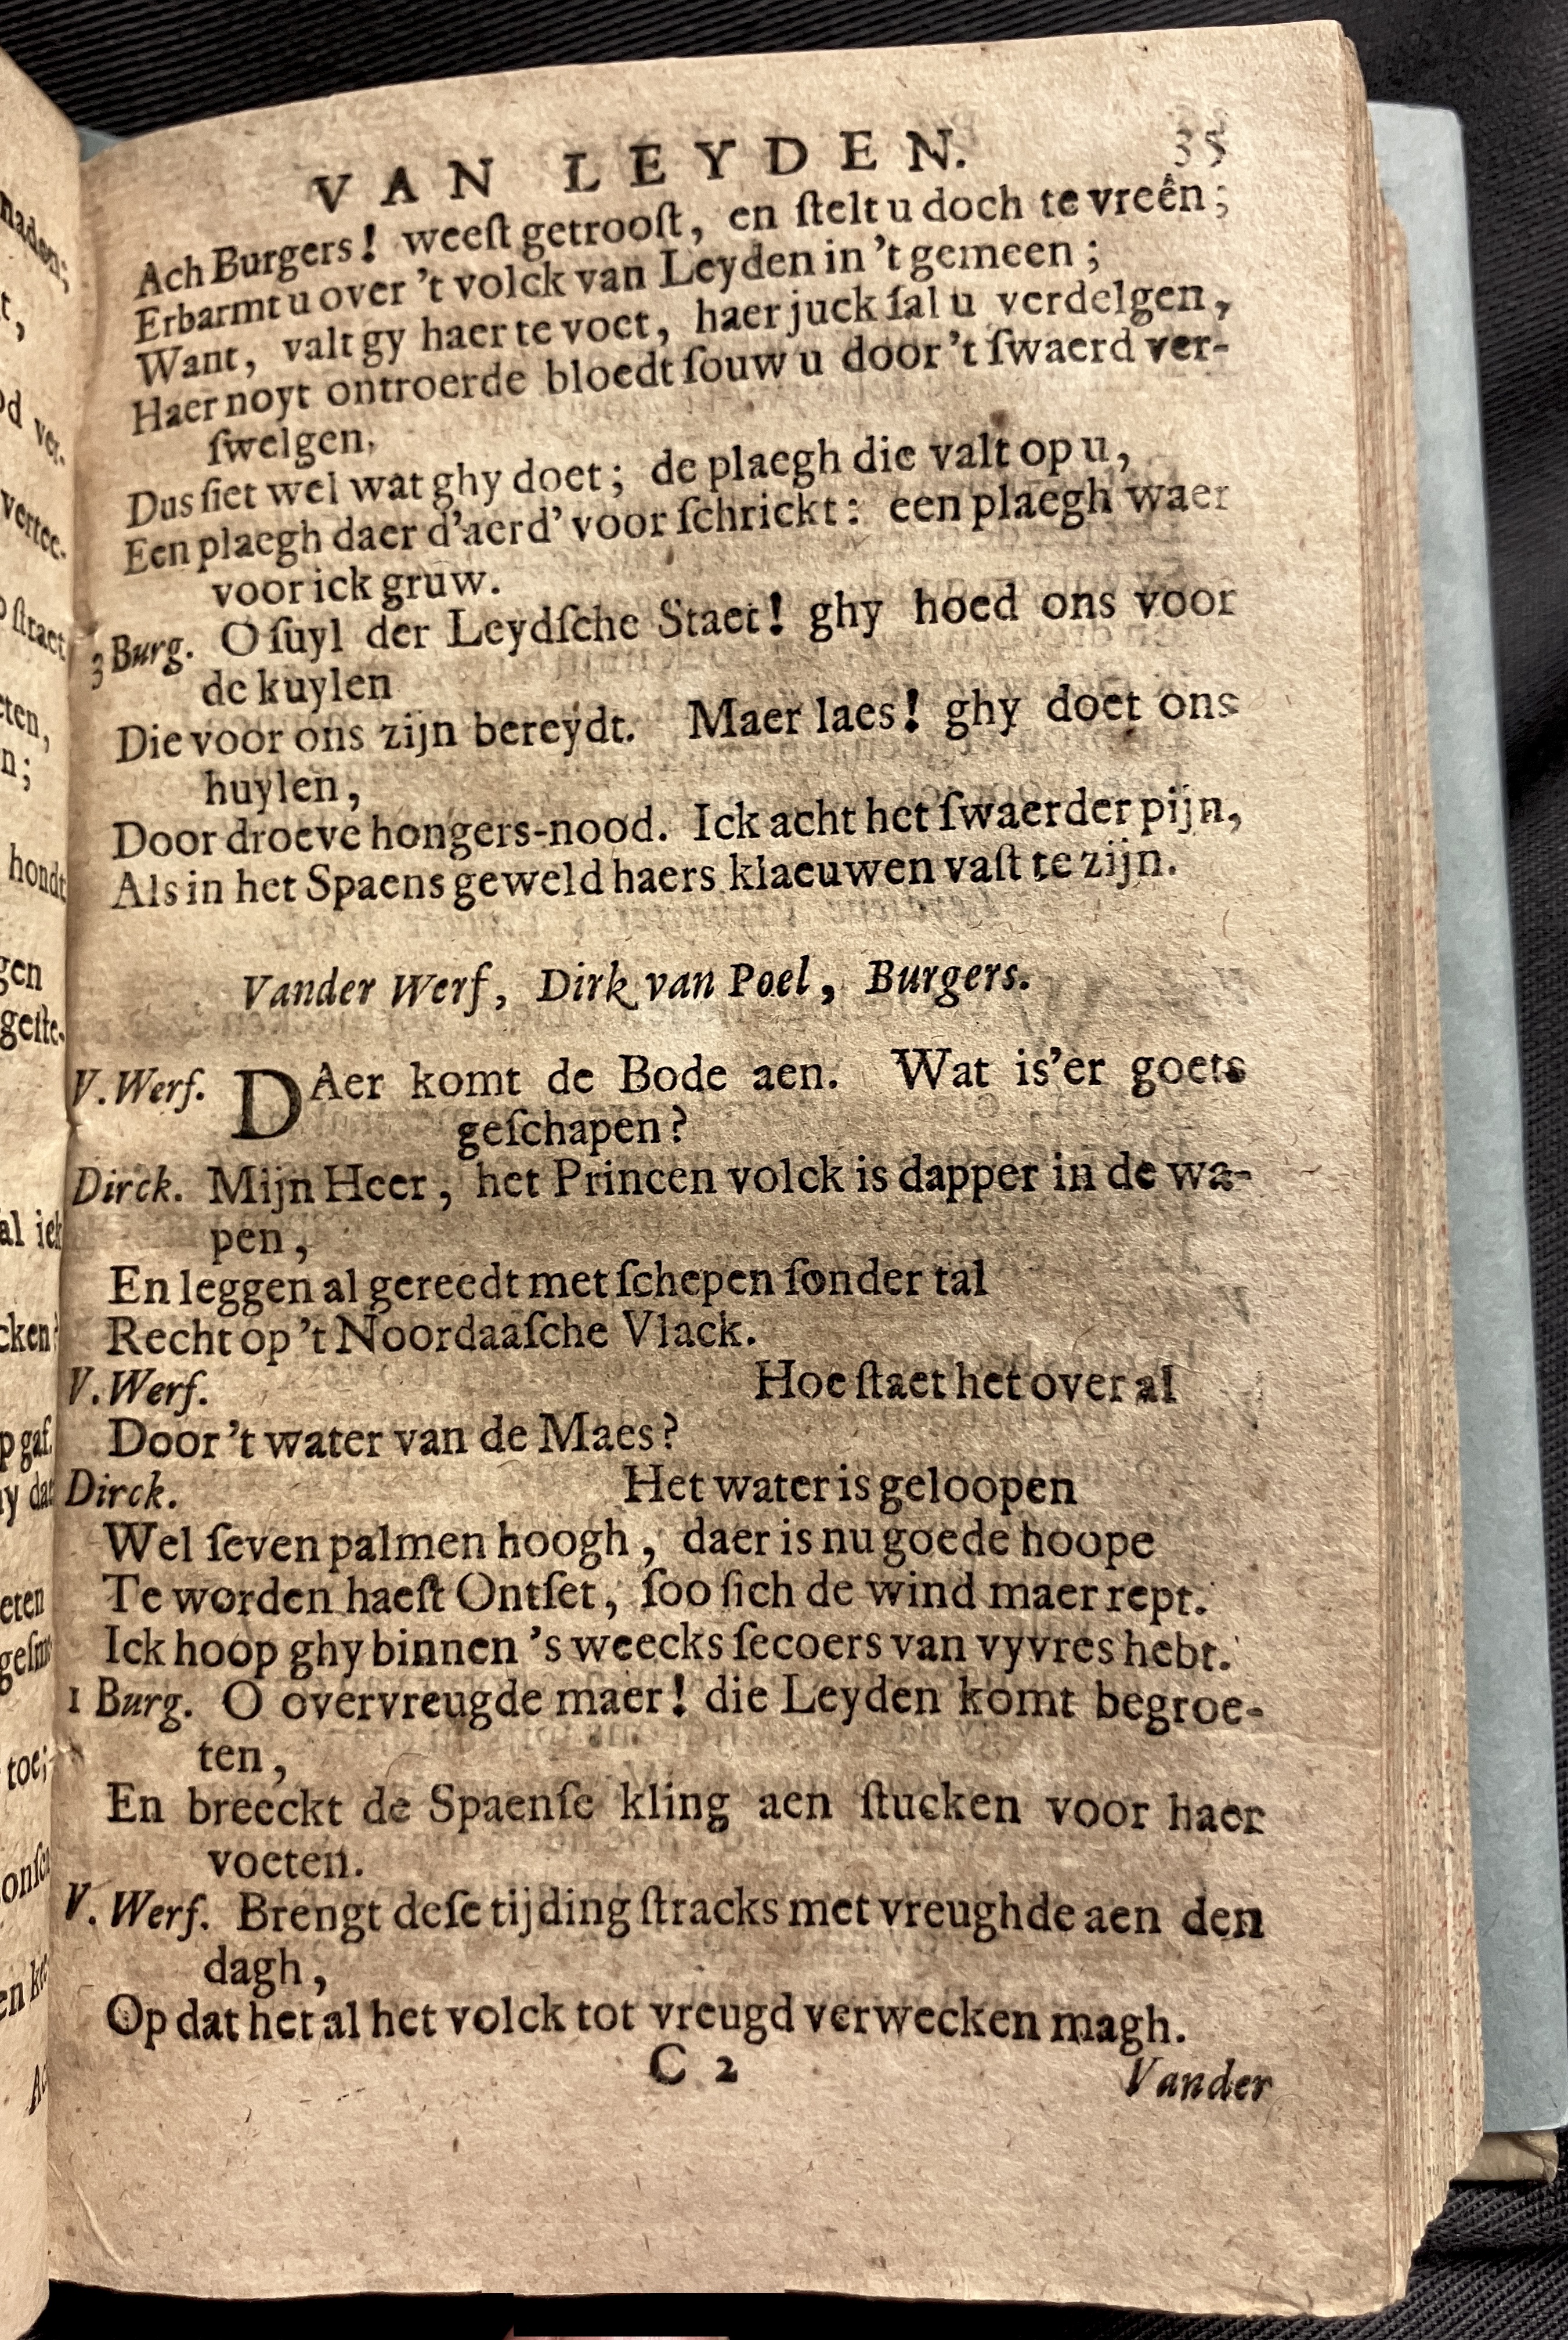 VAN LEYDEN. 35
Ach Burgers! weeſt getrooſt, en ſtelt u doch te vreên;
Erbarmt u over 't volck van Leyden in 't gemeen;
Want, valt gy haer te voet, haer juck ſal u verdelgen,
Haer noyt ontroerde bloedt ſouw u door 't ſwaerd ver-
ſwelgen.
Dus ſiet wel wat ghy doet; de plaegh die valt op u,
Een plaegh daer d'aerd' voor ſchrickt: een plaegh waer
voor ick gruw.
3 Burg. O ſuyl der Leydſche Staet! ghy hoed ons voor
de kuylen
Die voor ons zijn bereydt. Maer laes! ghy doet ons
huylen,
Door droeve hongers-nood. Ick acht het ſwaerder pijn,
Als in het Spaens geweld haers klaeuwen vaſt te zijn.
Vander Werf, Dirk van Poel, Burgers.
V. Werf. DAer komt de Bode aen. Wat is'er goets
geſchapen?
Dirck. Mijn Heer, het Princen volck is dapper in de wa-
pen,
En leggen al gereedt met ſchepen ſonder tal
Recht op 't Noordaaſche Vlack.
V. Werf. Hoe ſtaet het over al
Door 't water van de Maes?
Dirck. Het water is geloopen
Wel ſeven palmen hoogh, daer is nu goede hoope
Te worden haeſt Ontſet, ſoo ſich de wind maer rept.
Ick hoop ghy binnen 's weecks ſecoers van vyvres hebt.
1 Burg. O overvreugde maer! die Leyden komt begroe-
ten,
En breeckt de Spaenſe kling aen ſtucken voor haer
voeten.
V. Werf. Brengt deſe tijding ſtracks met vreughde aen den
dagh,
Op dat het al het volck tot vreugd verwecken magh.
C 2 Vander